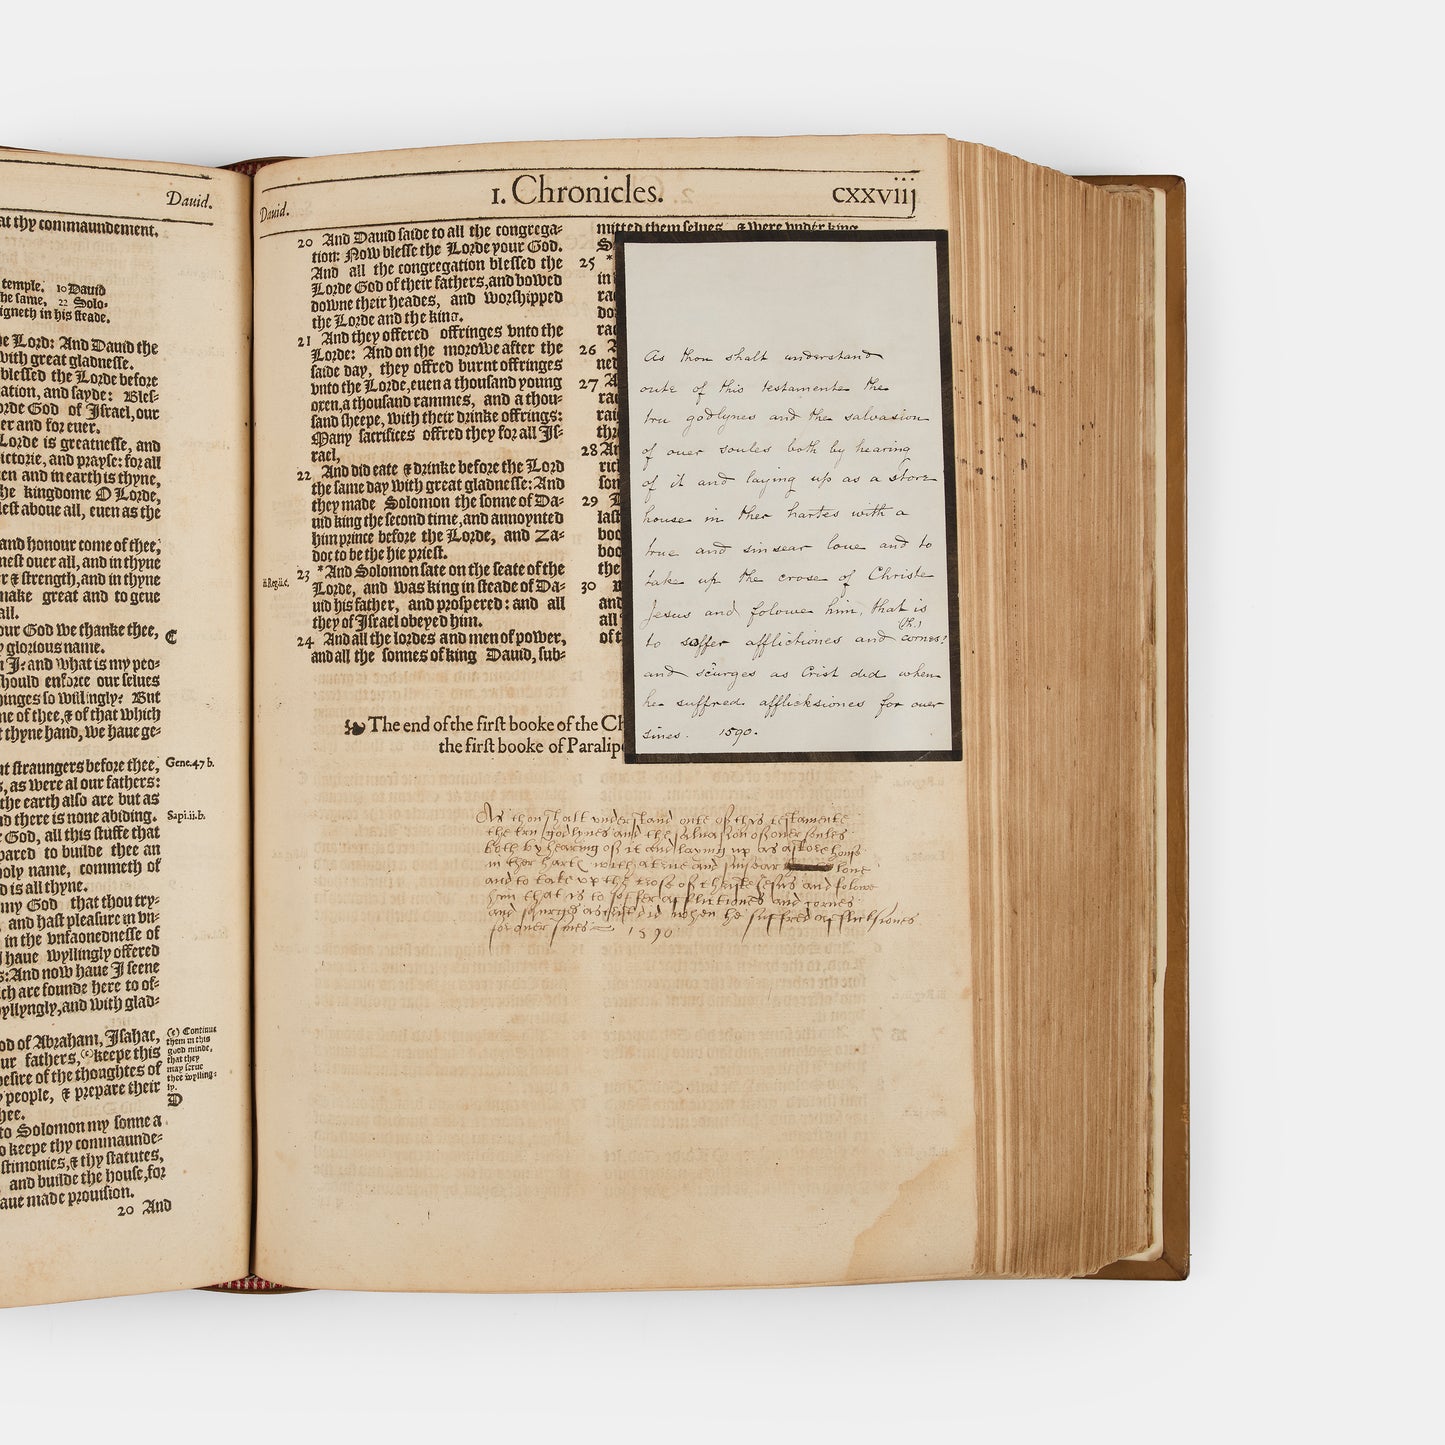 Dauid.
at thy commaundement.
temple. 10 Dauid
he same, 22 Solo-
igneth in his steade.
e Lord: And Dauid the
with great gladnesse.
blessed the Lorde before
ation, and sayde: Bles-
orde God of Israel, our
er and for euer.
Lorde is greatnesse, and
ictorie, and prayse: for all
en and in earth is thyne,
he kingdome O Lorde,
lest aboue all, euen as the
and honour come of thee,
nest ouer all, and in thyne
r & strength, and in thyne
make great and to geue
all.
our God we thanke thee,
y glorious name.
C
n I: and what is my peo-
hould enforce our selues
hinges so willingly: But
ne of thee, & of that which
t thyne hand, we haue ge-
nt straungers before thee,
Gene.47 b.
s, as were al our fathers:
the earth also are but as
nd there is none abiding.
Sapi.ii.b.
r God, all this stuffe that
pared to builde thee an
holy name, commeth of
d is all thyne.
my God that thou try-
, and hast pleasure in vn-
in the vnfaonednesse of
I haue wyllingly offered
s: And now haue I seene
ich are founde here to of-
yllyngly, and with glad-
od of Abraham, Isahac,
ur fathers, (c) keepe this
esire of the thoughtes of
people, & prepare their
hee.
(c) Continue
them in this
good minde,
that they
may serue
thee wylling-
ly.
D
to Solomon my sonne a
o keepe thy commaunde-
stimonies, & thy statutes,
and builde the house, for
aue made prouision.
20 And
Dauid.
1. Chronicles.
cxxviij
20 And Dauid saide to all the congrega-
tion: Now blesse the Lorde your God.
And all the congregation blessed the
Lorde God of their fathers, and bowed
downe their heades, and worshipped
the Lorde and the king.
21 And they offered offringes vnto the
Lorde: And on the morowe after the
saide day, they offred burnt offringes
vnto the Lorde, euen a thousand young
oxen, a thousand rammes, and a thou-
sand sheepe, with their drinke offrings:
Many sacrifices offred they for all Is-
rael,
22 And did eate & drinke before the Lord
the same day with great gladnesse: And
they made Solomon the sonne of Da-
uid king the second time, and annoynted
him prince before the Lorde, and Za-
doc to be the hie priest.
ii.Reg.ii.c.
23 *And Solomon sate on the seate of the
Lorde, and was king in steade of Da-
uid his father, and prospered: and all
they of Israel obeyed him.
24 And all the lordes and men of power,
and all the sonnes of king Dauid, sub-
mitted them selues, & were vnder king
S
25 *
in
ra
do
ra
26 A
ned
27 A
rai
rai
thr
28 An
rich
son
29 D
last
boo
boo
the
30 w
and
all
of t
The end of the first booke of the Ch
the first booke of Paralip
As thou shalt understand
oute of this testamente the
tru godlynes and the salvasion
of ouer soules both by hearing
of it and laying up as a store
house in ther hartes with a
true and sinsear loue and to
take up the crose of Christe
Jesus and folowe him, that is
to soffer afflictiones and cornes!
(th.)
and scurges as Crist did when
he suffred afflicksiones for ouer
sines. 1590.
As thou shalt vnderstand oute of this testamente
the tru godlines and the saluasion of ouer soules
both by hearing of it and laying up as a store house
in ther harts with a true and sinsear loue
and to take vp the crose of christe Jesus and folowe
him that is to soffer afflictiones and cornes
and scurges as crist did when he suffred afflicksiones
for ouer sines 1590